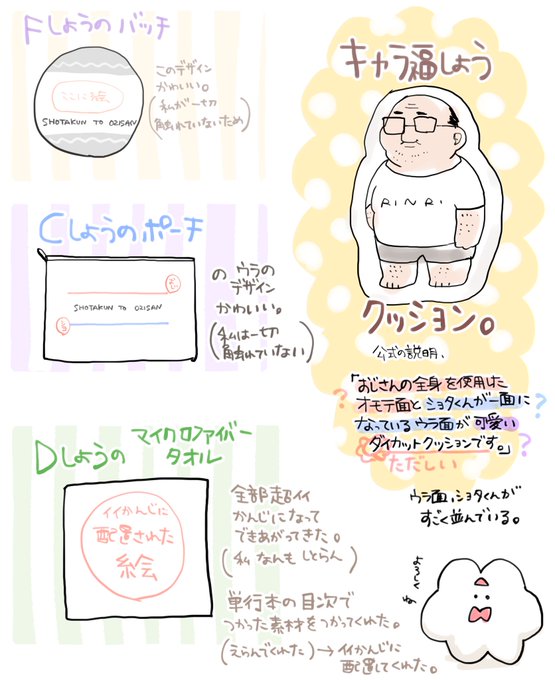 Fしょうのバッチ
このデザイン
かわいい。
(私が一切
触れていないため)
ここに絵。
SHOTAKUN TO OZISAN
Cしょうのポーチ
SHOTAKUN TO OZISAN
の ウラの
デザイン
かわいい。
(私は一切
触れていない)
Dしょうの マイクロファイバー
タオル
イイかんじに
配置された
絵
全部超イイ
かんじになって
できあがってきた。
(私 なんも しとらん)
単行本の目次で
つかった素材をつかってくれた。
(えらんでくれた)→イイかんじに
配置してくれた。
キャラ福しょう
RINRI
クッション。
公式の説明、
「おじさんの全身を使用した
オモテ面とショタくんが一面に
なっているウラ面が可愛い
ダイカットクッションです。」
? ? ?
ただしい
ウラ面、ショタくんが
すごく並んでいる。